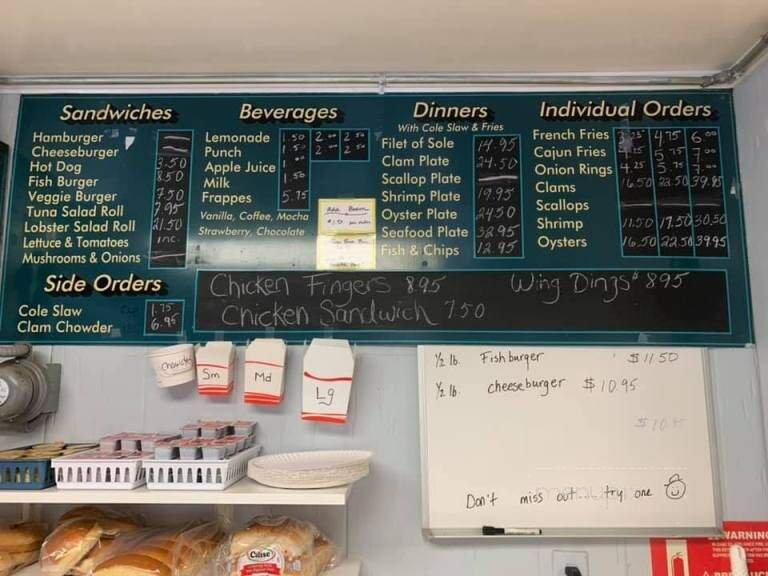 Sandwiches
Hamburger
Cheeseburger
Hot Dog 3.50
Fish Burger 8.50
Veggie Burger 7.50
Tuna Salad Roll 7.95
Lobster Salad Roll 21.50
Lettuce & Tomatoes inc.
Mushrooms & Onions
Side Orders
Cole Slaw 1.75
Clam Chowder 6.95
Beverages
Lemonade 1.50 2.00 2.50
Punch 1.50 2.00 2.50
Apple Juice
Milk 1.50
Frappes 5.75
Vanilla, Coffee, Mocha
Strawberry, Chocolate
Dinners
With Cole Slaw & Fries
Filet of Sole 14.95
Clam Plate 24.50
Scallop Plate
Shrimp Plate 19.95
Oyster Plate 24.50
Seafood Plate 32.95
Fish & Chips 12.95
Individual Orders
French Fries 4.75 6.00
Cajun Fries 5.75 7.00
Onion Rings 4.25 5.75 7.00
Clams 16.50 22.50 39.95
Scallops
Shrimp 11.50 17.50 30.50
Oysters 16.50 22.50 39.95
Chicken Fingers 8.95 Wing Dings 8.95
Chicken Sandwich 7.50
Chowder
Sm
Md
Lg
1/2 lb. Fishburger $11.50
1/2 lb. cheeseburger $10.95
Don't miss out try one
WARNING